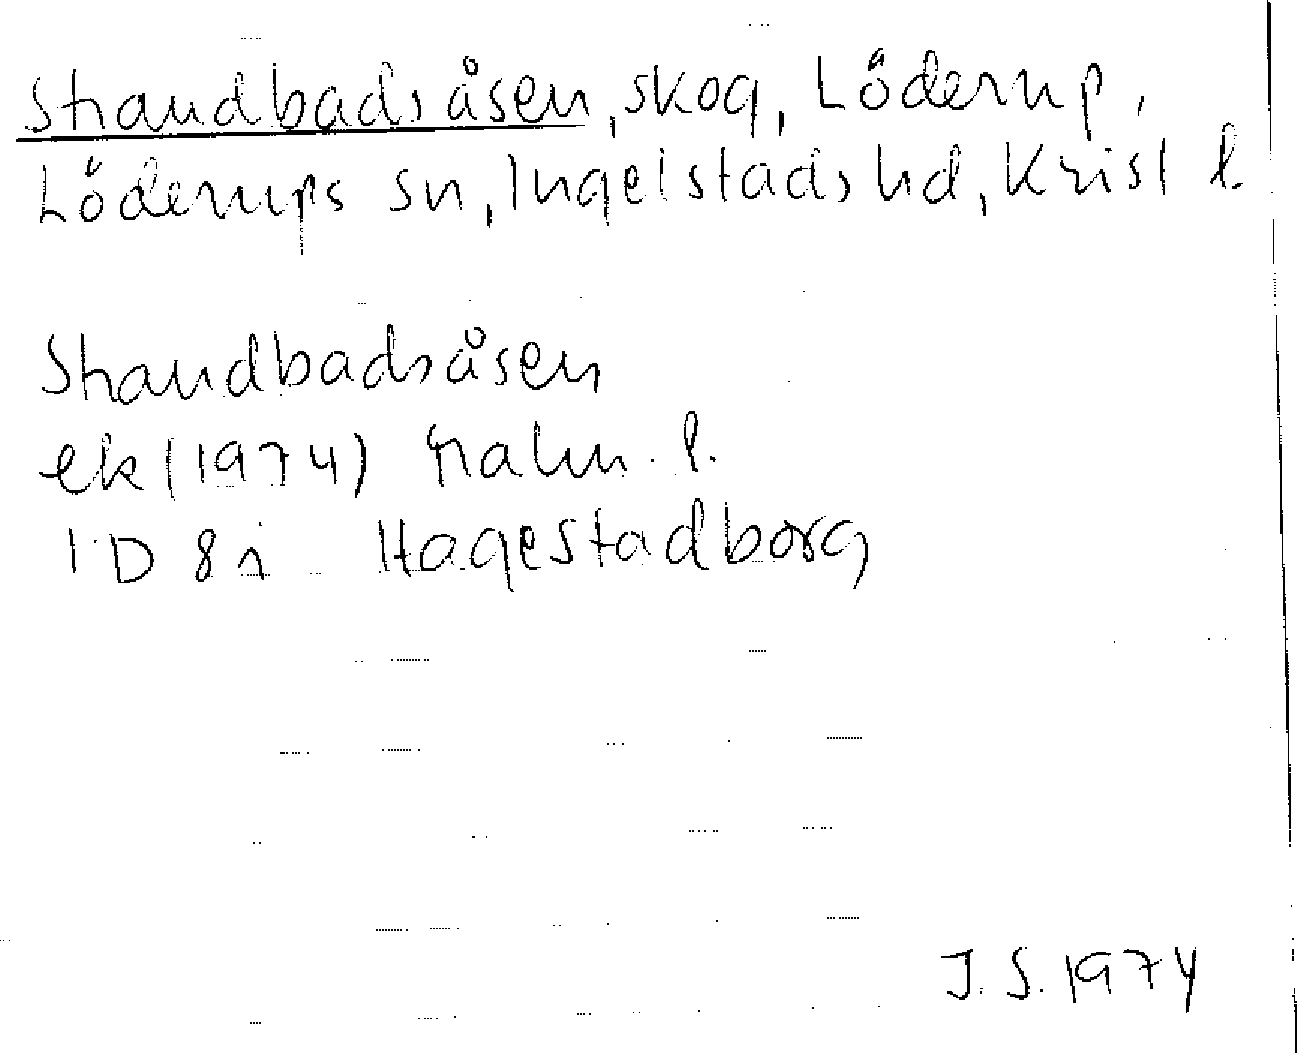 Strandbadsåsen, skog, Löderup,
Löderups sn, Ingelstads hd, Krist l.
Strandbadsåsen
ek (1974) Malm. l.
1 D 8 i Hagestadborg
J. S. 1974